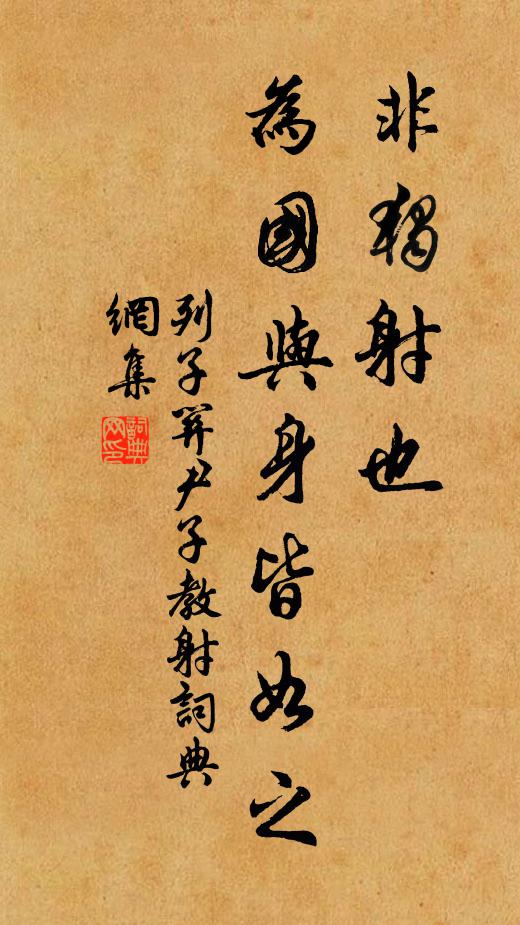 非獨射也
為國與身皆如之
列子關尹子教射詞典
網集
詞典
網印